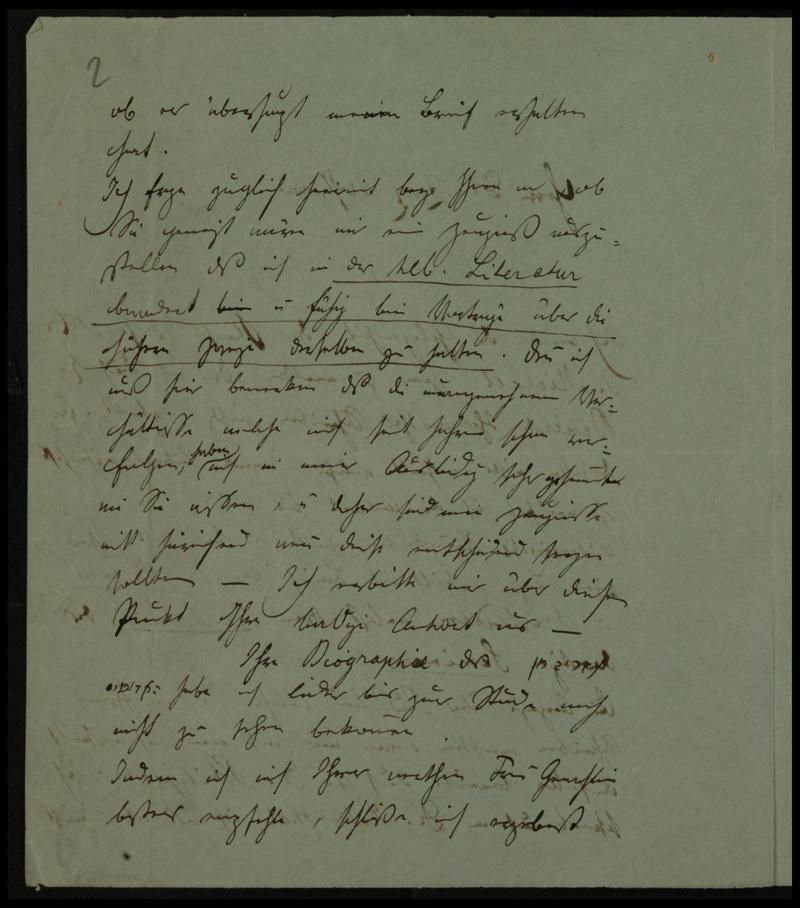 2
ob er überhaupt meinen Brief erhalten
hat.
Ich frage zugleich hiermit bey Ihnen an, ob
Sie geneigt wären mir ein Zeugniß auszu=
stellen dß ich in der heb. Literatur
bewandert bin u fähig bin Vorträge über die
derselben zu halten. Denn ich
muß hier bemerken dß die unangenehmen Ver=
hältnisse welche mich seit Jahren schon ver=
folgen, haben mich in meiner Ausbildg sehr gehemmt
wie Sie wissen, u daher sind meine Zeugnisse
nicht hinreichend wenn diese entscheidend
sollten — Ich erbitte mir über diesen
Punkt Ihre baldige Antwort aus —
Ihre Biographie des
habe ich leider bis zur Stunde noch
nicht zu sehen bekommen.
Indem ich mich Ihrer werthen Frau Gemahlin
bestens empfehle, schließe ich ergebenst